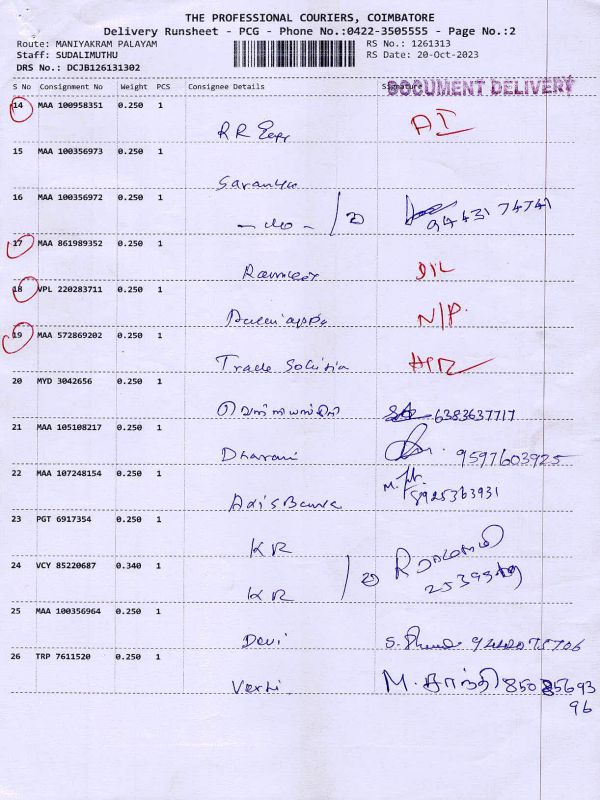 THE PROFESSIONAL COURIERS, COIMBATORE
Delivery Runsheet - PCG - Phone No.:0422-3505555 - Page No.:2
Route: MANIYAKRAM PALAYAM RS No.: 1261313
Staff: SUDALIMUTHU RS Date: 20-Oct-2023
DRS No.: DCJB126131302
S No Consignment No Weight PCS Consignee Details Signature
DOCUMENT DELIVERY
14 MAA 100958351 0.250 1
RR
15 MAA 100356973 0.250 1
Saranya
16 MAA 100356972 0.250 1
- do - 2 94431 74741
17 MAA 861989352 0.250 1
D/L
18 VPL 220283711 0.250 1
N/P.
19 MAA 572869202 0.250 1
Trade
20 MYD 3042656 0.250 1
6383637717
21 MAA 105108217 0.250 1
Dharani 9597603925
22 MAA 107248154 0.250 1
Axis Bank 8925363931
23 PGT 6917354 0.250 1
KR
24 VCY 85220687 0.340 1
KR 2
25 MAA 100356964 0.250 1
Devi
26 TRP 7611520 0.250 1
M. சாந்தி
96